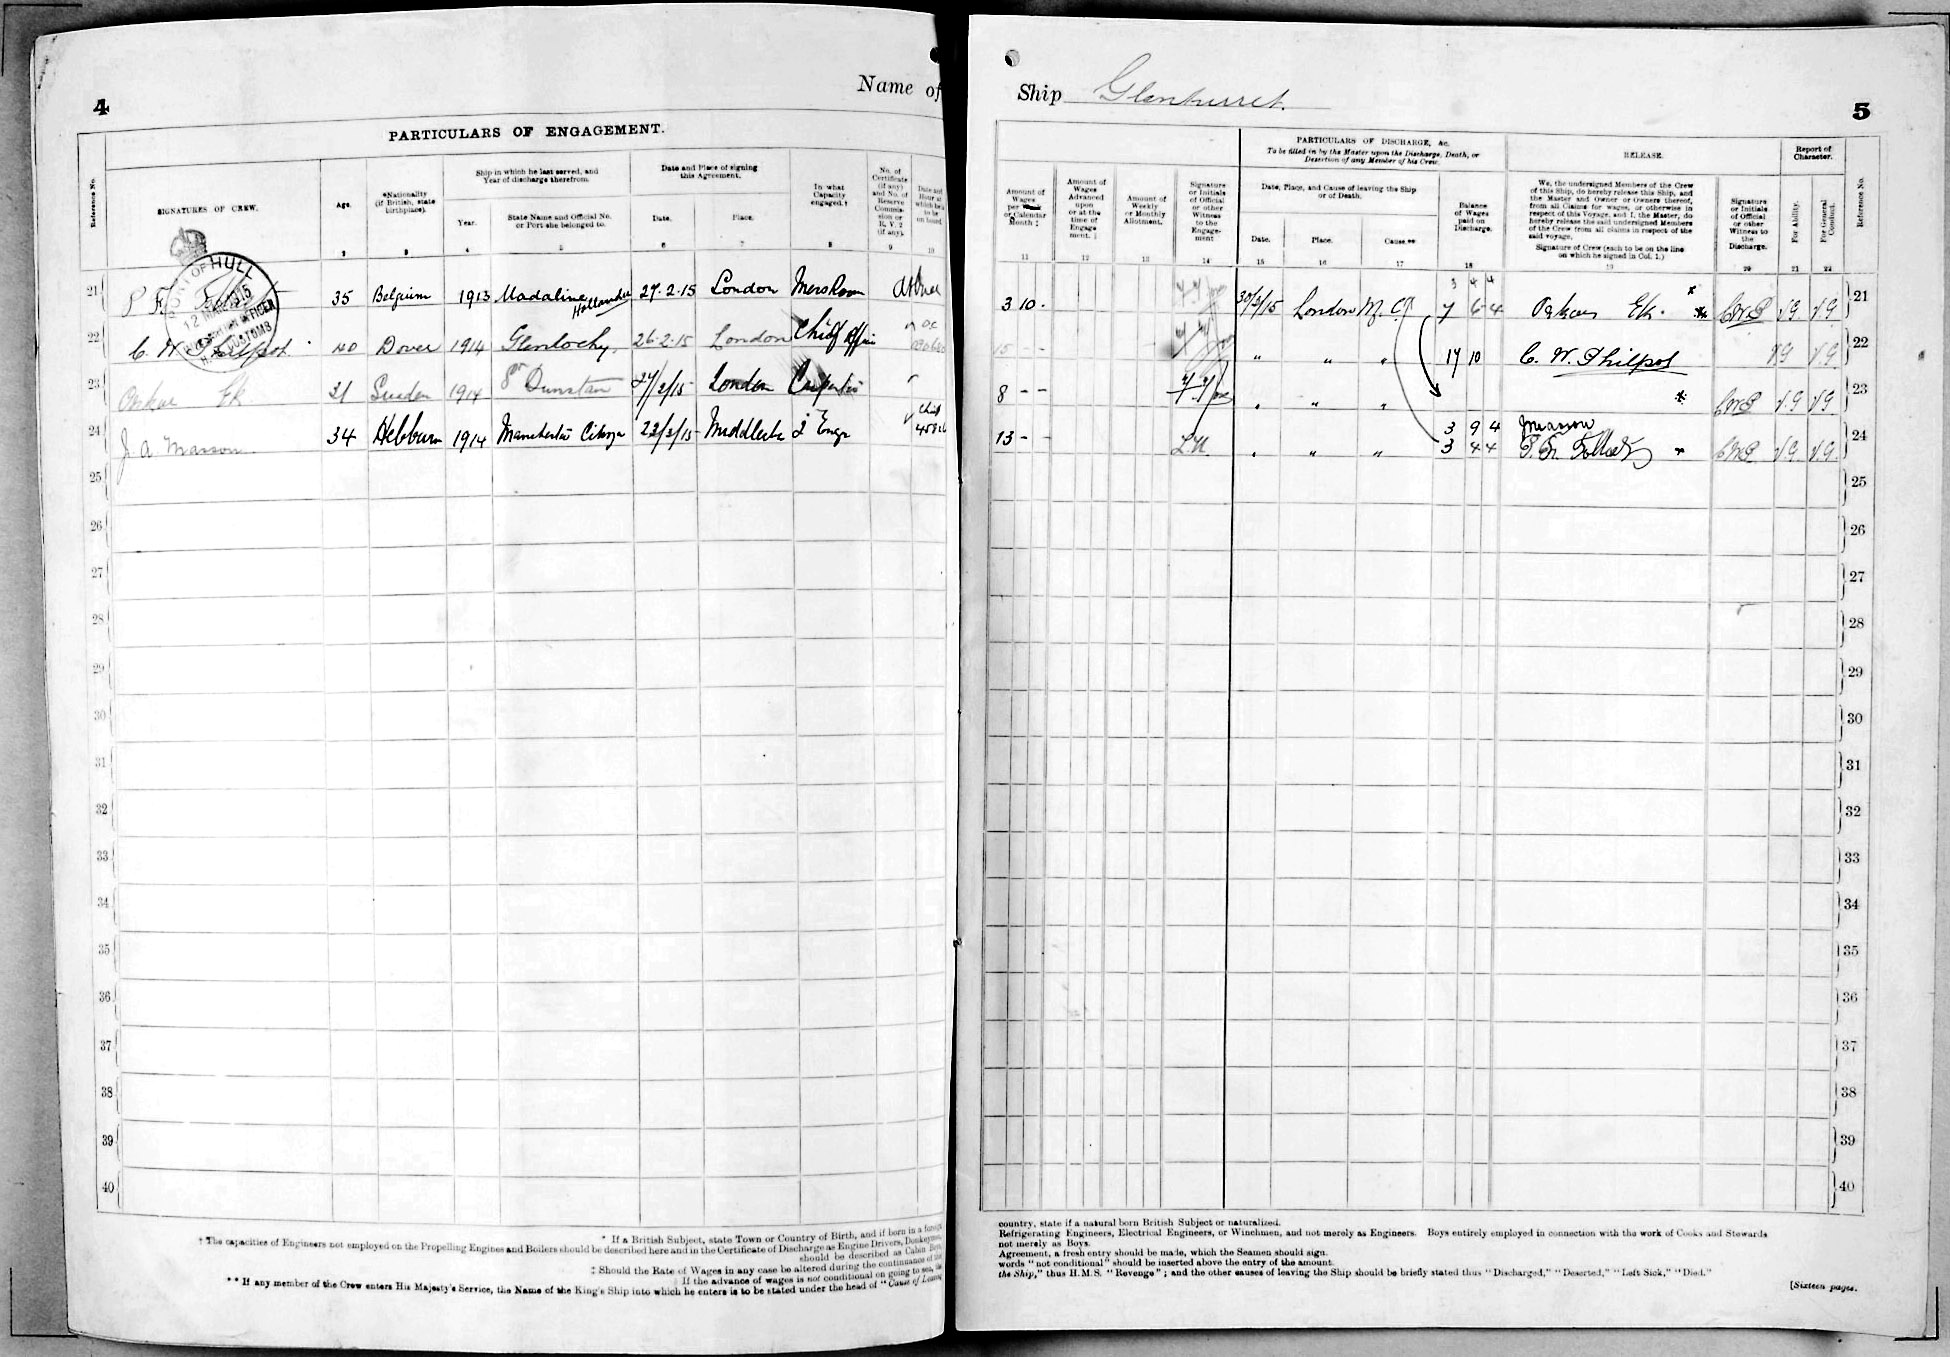 4
Name of
PARTICULARS OF ENGAGEMENT.
Reference No.
SIGNATURES OF CREW.
Age.
*Nationality (if British, state birthplace).
Ship in which he last served, and Year of discharge therefrom.
Year.
State Name and Official No. or Port she belonged to.
Date and Place of signing this Agreement.
Date.
Place.
In what Capacity engaged.†
No. of Certificate (if any) and No. of Reserve Commission or R.V.2 (if any).
3 4 5 6 7 8 9 10
PORT OF HULL
12 MAR 1915
H.M. CUSTOMS
21 35 Belgium 1913 Madaline 27-2-15 London Mess Room
22 C. W. Philpot 40 Dover 1914 Glenlochy 26-2-15 London Chief Offr
23 Oskar Ek 21 Sweden 1914 St Dunstan 27/2/15 London Carpenter
24 J. A. Masson 34 Hebburn 1914 Manchester Citizen 22/2/15 Middlesbro 2 Engr
25
26
27
28
29
30
31
32
33
34
35
36
37
38
39
40
* If a British Subject, state Town or Country of Birth, and if born in a foreign
† The capacities of Engineers not employed on the Propelling Engines and Boilers should be described here and in the Certificate of Discharge as Engine Drivers, Donkeymen,
should be described as Cabin Boys,
‡ Should the Rate of Wages in any case be altered during the continuance of the
If the advance of wages is not conditional on going to sea, the
** If any member of the Crew enters His Majesty's Service, the Name of the King's Ship into which he enters is to be stated under the head of "Cause of Leaving
Ship Glenturret.
5
Amount of Wages per Calendar Month ‡
Amount of Wages Advanced upon or at the time of Engagement.
Amount of Weekly or Monthly Allotment.
Signature or Initials of Official or other Witness to the Engagement
PARTICULARS OF DISCHARGE, &c.
To be filled in by the Master upon the Discharge, Death, or Desertion of any Member of his Crew.
Date, Place, and Cause of leaving the Ship or of Death.
Date.
Place.
Cause.**
Balance of Wages paid on Discharge.
RELEASE.
We, the undersigned Members of the Crew of this Ship, do hereby release this Ship, and the Master and Owner or Owners thereof, from all Claims for wages, or otherwise in respect of this Voyage, and I, the Master, do hereby release the said undersigned Members of the Crew from all claims in respect of the said voyage.
Signature of Crew (each to be on the line on which he signed in Col. 1.)
Signature or Initials of Official or other Witness to the Discharge.
Report of Character.
For Ability.
For General Conduct.
Reference No.
11 12 13 14 15 16 17 18 19 20 21 22
3 4 4
3 10 - 30/3/15 London 7 6 4 Oskar Ek. CWP VG VG 21
15 - - " " " 17 10 C. W. Philpot VG VG 22
8 - - " " " CWP VG VG 23
3 9 4 JMasson
13 - - " " " 3 4 4 CWP VG VG 24
25
26
27
28
29
30
31
32
33
34
35
36
37
38
39
40
country, state if a natural born British Subject or naturalized.
Refrigerating Engineers, Electrical Engineers, or Winchmen, and not merely as Engineers. Boys entirely employed in connection with the work of Cooks and Stewards
not merely as Boys.
Agreement, a fresh entry should be made, which the Seamen should sign.
words "not conditional" should be inserted above the entry of the amount.
the Ship," thus H.M.S. "Revenge"; and the other causes of leaving the Ship should be briefly stated thus "Discharged," "Deserted," "Left Sick," "Died."
[Sixteen pages.